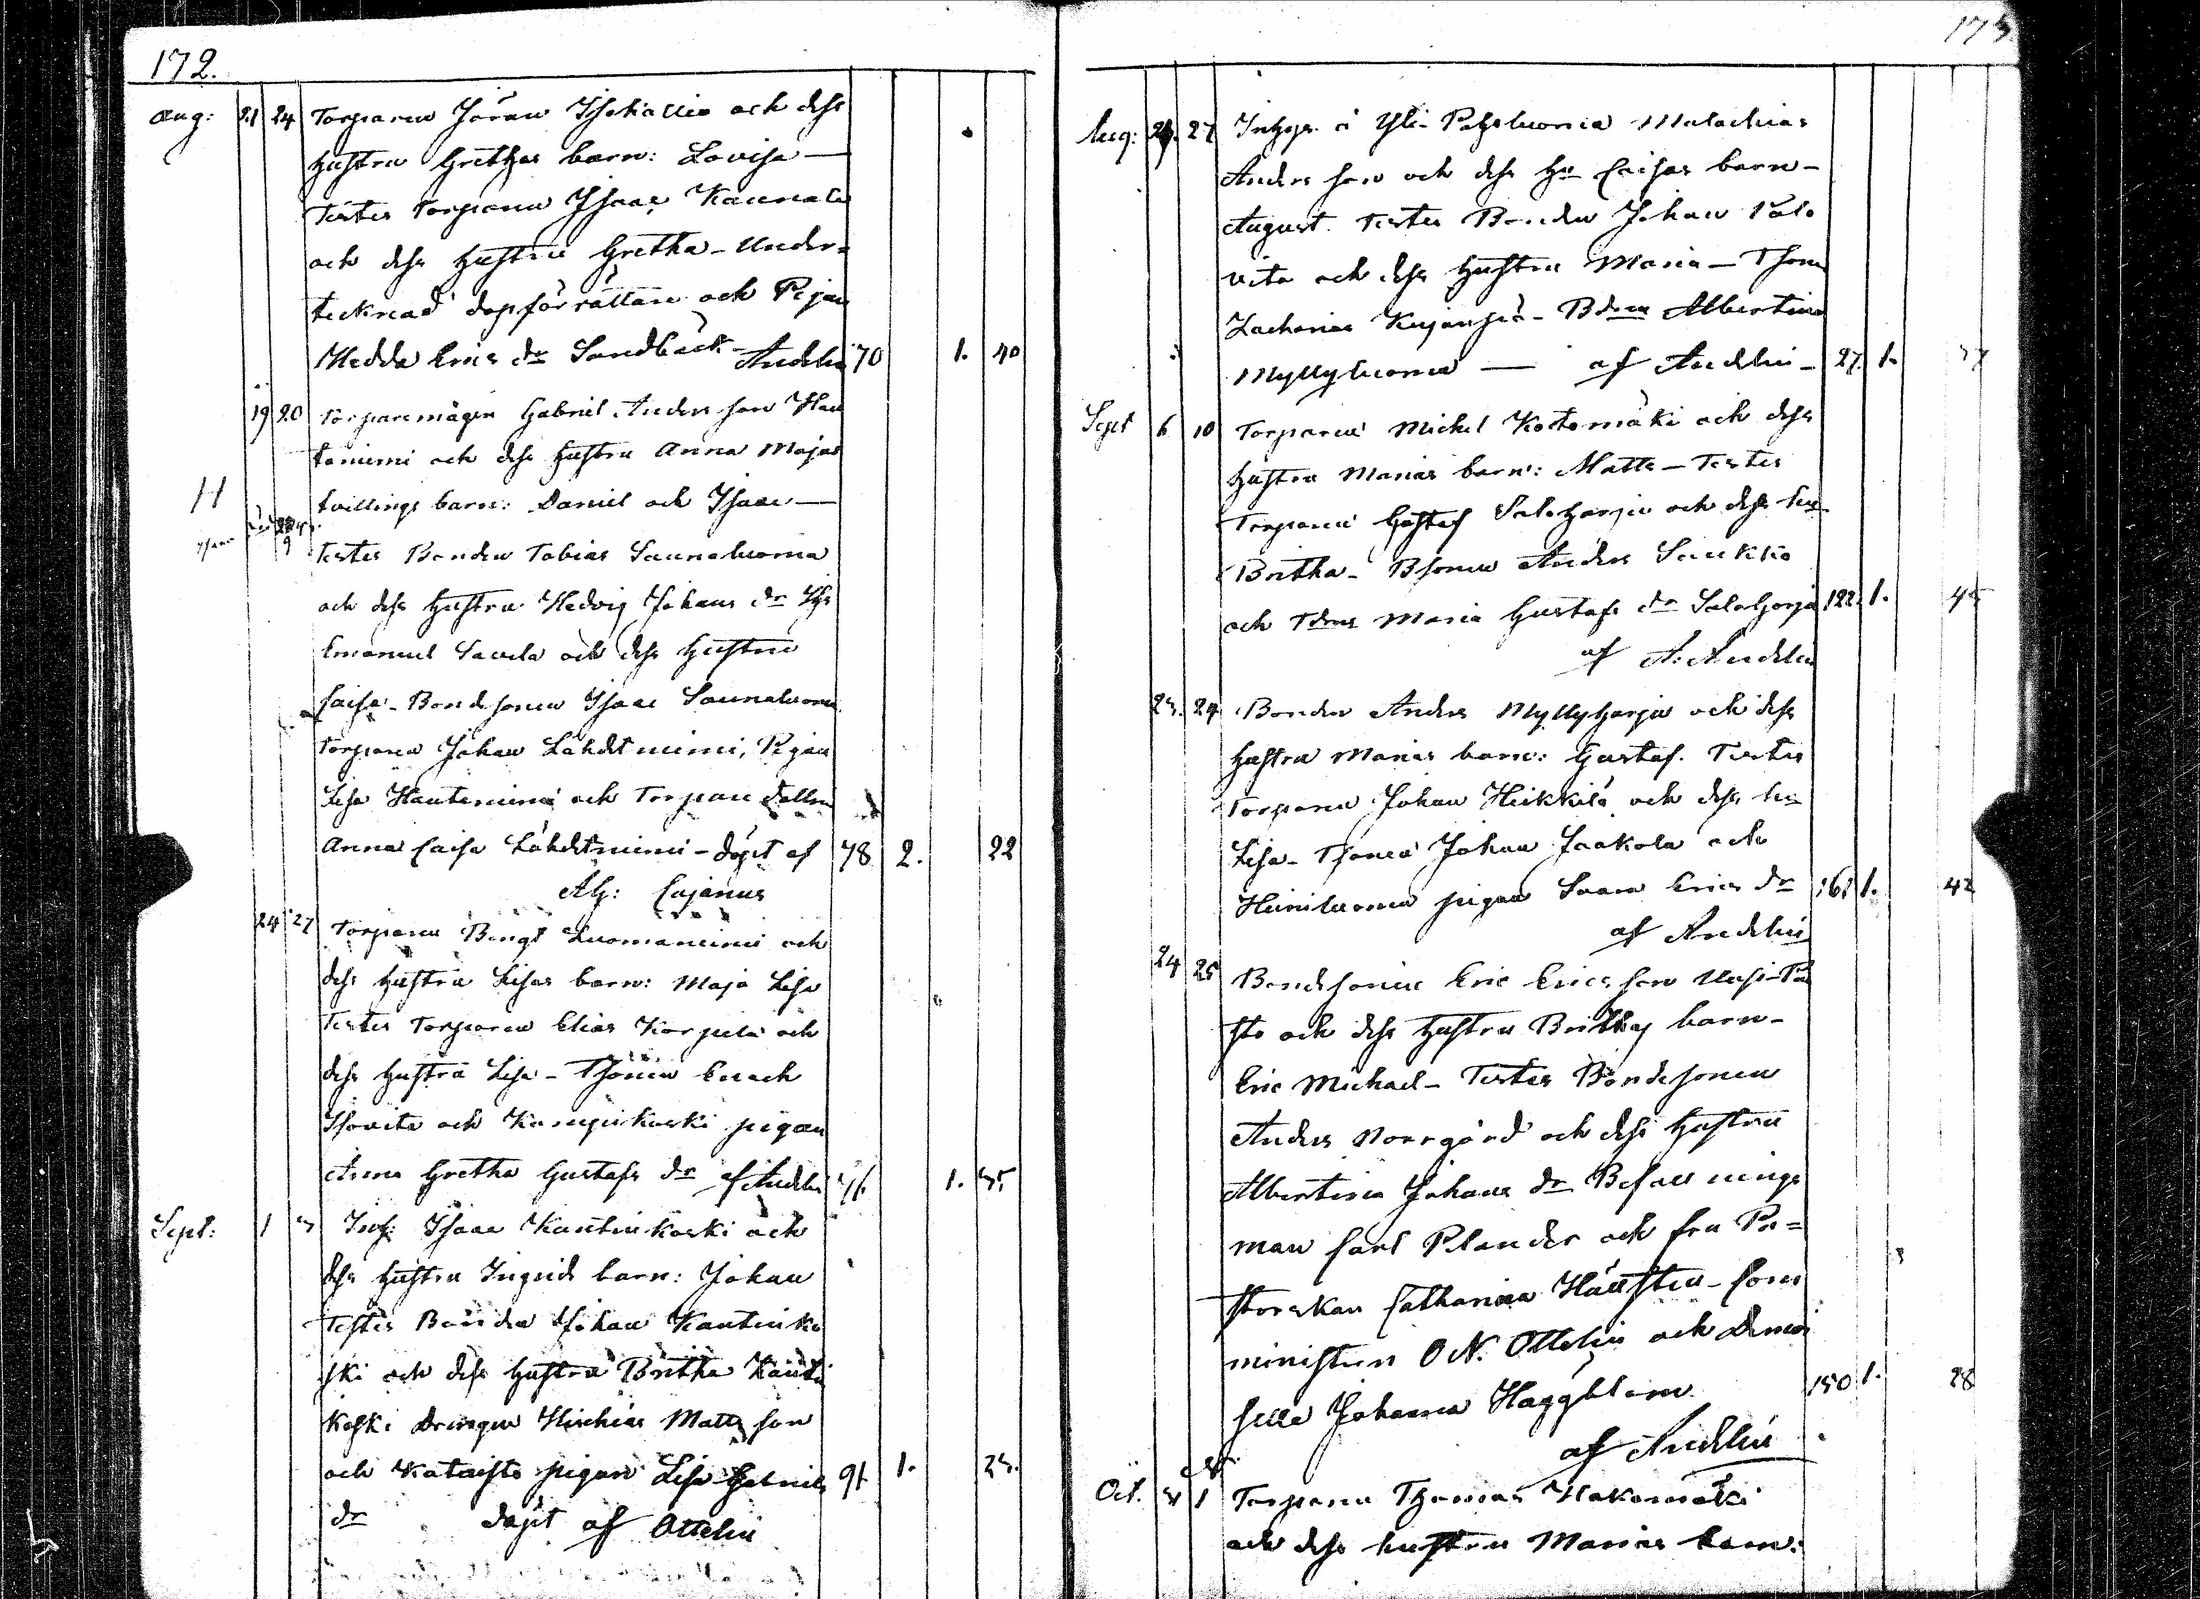 172.
Aug: 21 24 Torparen Jöran Isokallio och dess
hustru Grethas barn: Lovisa —
Testes Torparen Isaac Kaunala
och dess hustru Gretha – Under=
tecknad dopförrättare och Pigan
Hedda Erics dr Sandback – Andelin 70 1. 40
19 20 Torparemågen Gabriel Anders son Hau
taniemi och dess hustru Anna Majas
H tvillings barn: Daniel och Isaac —
Testes Bonden Tobias Saunaluoma
och dess hustru Hedvig Johans dr
Emanuel Savela och dess hustru
Caisa – Bondesonen Isaac Saunaluoma
Torparen Johan Lähdetniemi, Pigan
Lisa Hautaniemi och Torpare dottren
Anna Caisa Lähdetniemi – döpt af 78 2. 22
Ah: Cajanus
24 27 Torparen Bengt Luomaniemi och
dess hustru Lisas barn: Maja Lisa
Testes Torparen Elias Korpela och
dess hustru Lisa – Tsonen Enach
Isovita och Karupikoski pigan
Anna Gretha Gustafs dr af Andelin 1. 35
Sept: 1 3 Inh: Isaac Kantinkoski och
dess hustru Ingrids barn: Johan
Testes Bonden Johan Kantinko
ski och dess hustru Britha Kantin
koski Drengen Hischias Matts son
och Kataisto pigan Lisa Gabriels 91 1. 23.
dr döpt af Ottelin
173
Aug: 27 Inhys. å Yli-Pahsluoma Malachias
Anders son och dess hu Caisas barn –
August. Testes Bonden Johan Palo
vita och dess hustru Maria – Tson
Zacharias Kujanpä – Bdren Albertina
Myllyluoma — af Andelin – 27. 1. 37
Sept 6 10 Torparen Michel Kotomäki och dess
hustru Marias barn: Matts – Testes
Torparen Gustaf Saloharju och dess hu
Britha – Bsonen Anders Saukko
och Tdren Maria Gustafs dr Saloharju 122. 1. 45
af A. Andelin
23. 24 Bonden Anders Myllyharju och dess
hustru Marias barn: Gustaf. Testes
Torparen Johan Heikkilä och dess hu
Lisa – Tsonen Johan Jaakola och
Heiniluoma pigan Saara Erics dr 161 1. 42
af Andelin
24 25 Bondsonen Eric Erics son Uusi-Pa
sto och dess hustru Brithas barn –
Eric Michael – Testes Bondesonen
Anders Norrgård och dess hustru
Albertina Johans dr Befallnings
man Carl Pelander och fru Pa=
storskan Catharina Hällsten – Com
ministern O N. Ottelin och Demoi
selle Johanna Häggblom 150 1. 28
af Andelin
Oct. 1 Torparen Thomas Hakomäki
och dess hustru Marias barn: